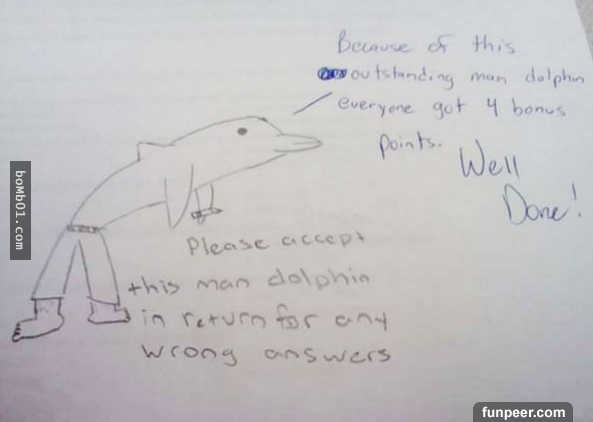 Because of this
outstanding man dolphin
everyone got 4 bonus
points.
Well
Done!
Please accept
this man dolphin
in return for any
wrong answers
boMb01.com
funpeer.com